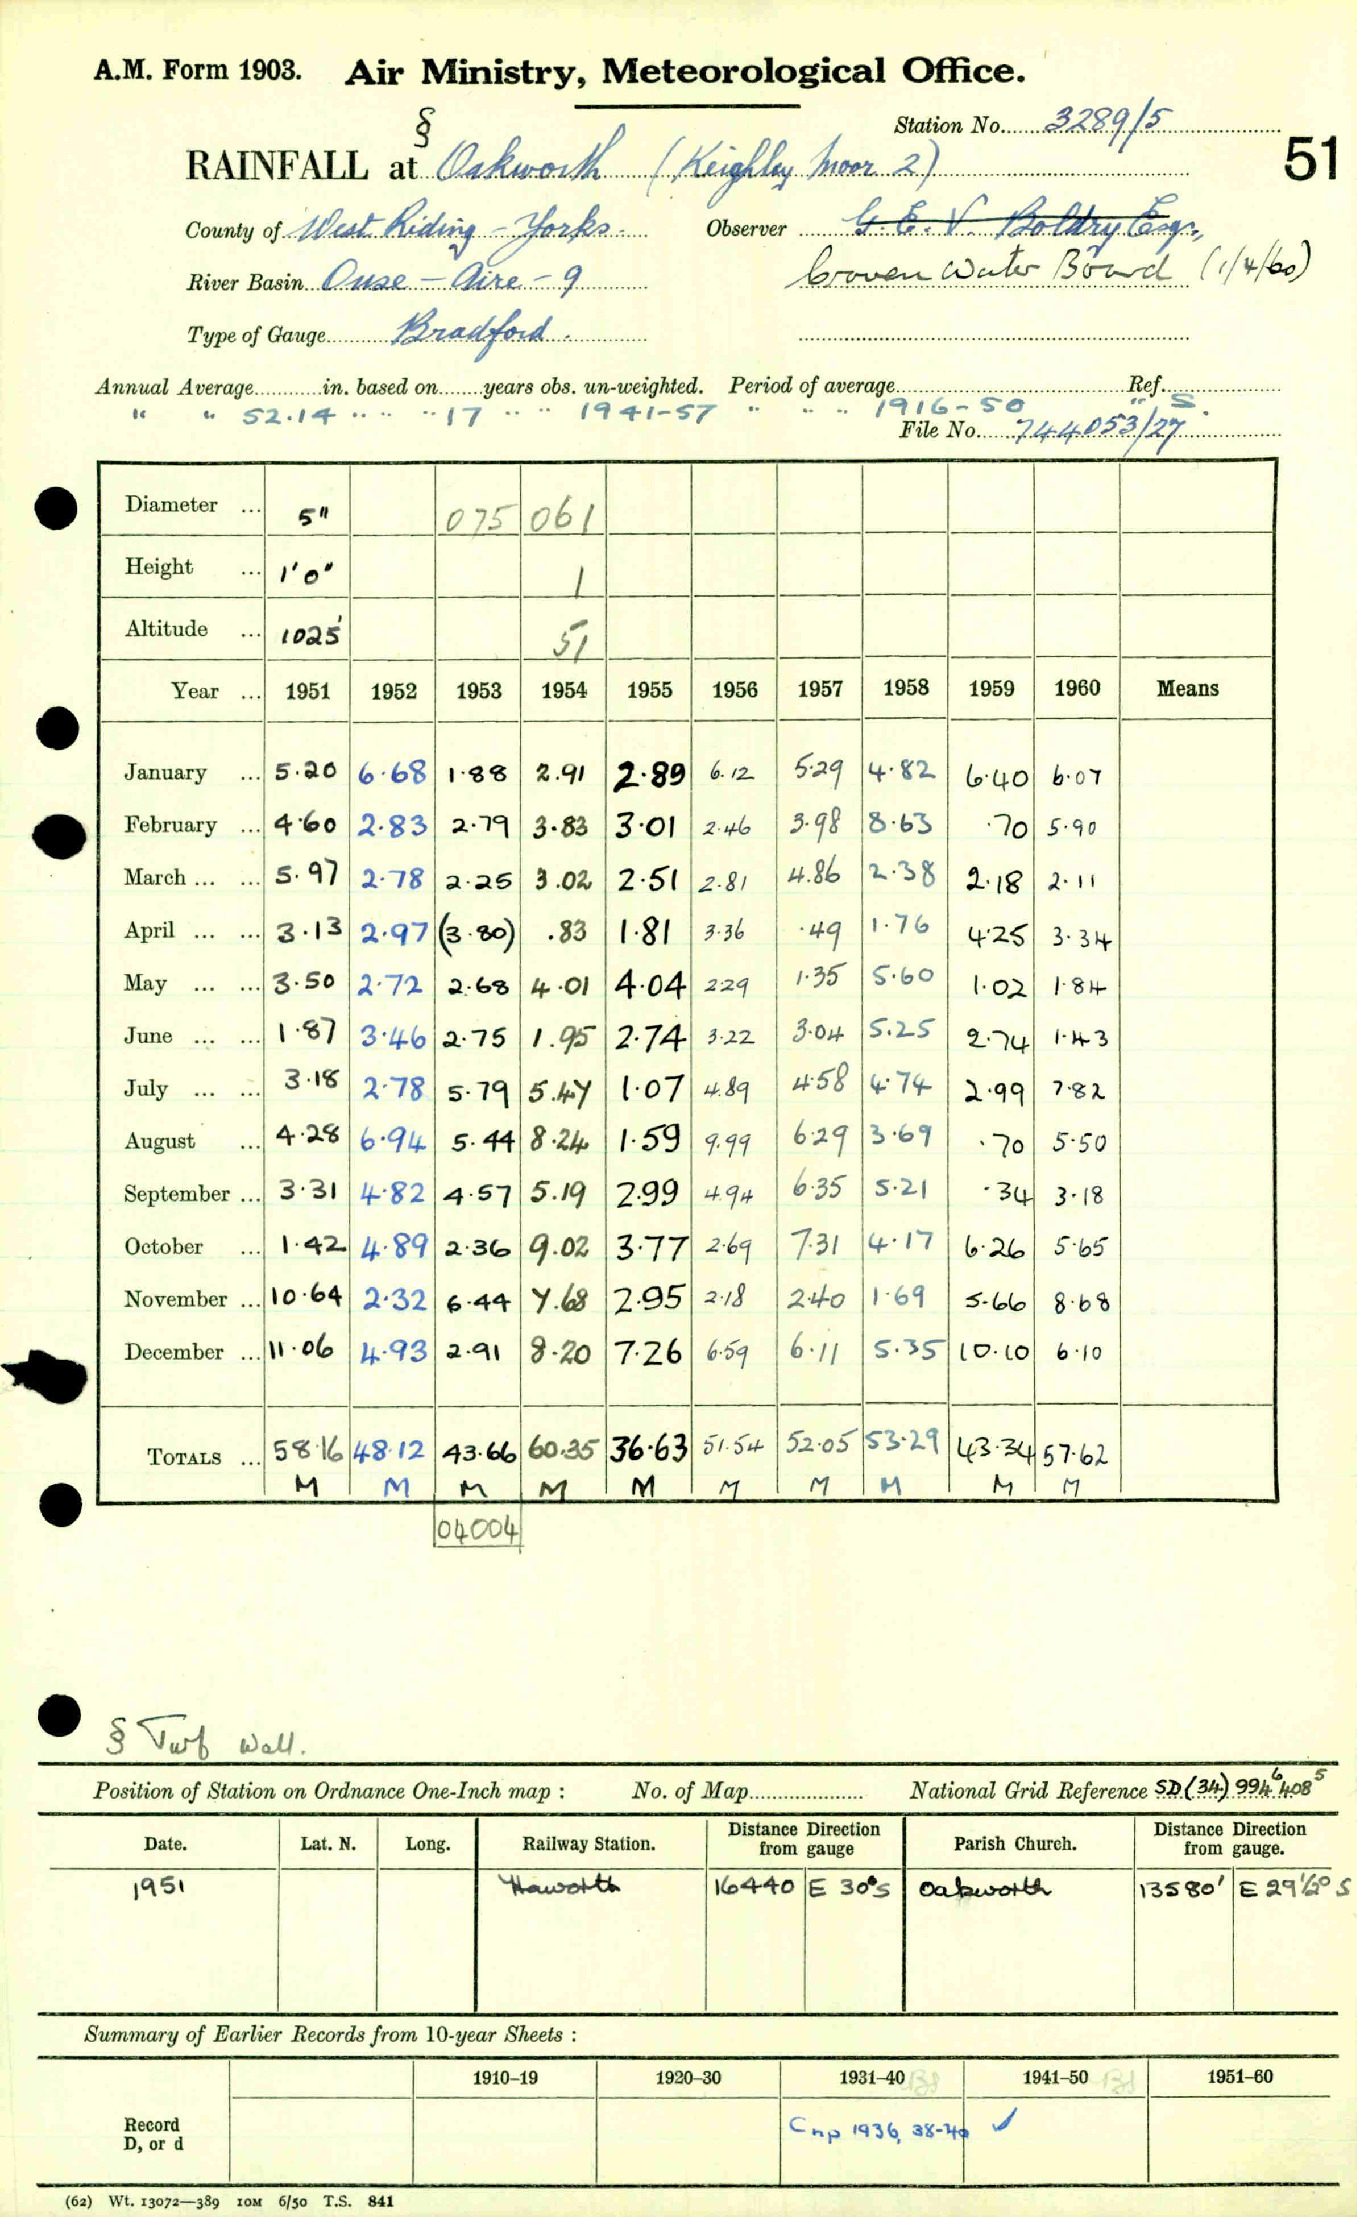 A.M. Form 1903. Air Ministry, Meteorological Office.
§
Station No. 3289/5
RAINFALL at Oakworth (Keighley Moor 2)
51
County of West Riding - Yorks. Observer G. E. V. Boldry Esq.,
River Basin Ouse - Aire - 9 Craven Water Board (1/4/60)
Type of Gauge Bradford.
Annual Average in. based on years obs. un-weighted. Period of average Ref.
" " 52.14 " " " 17 " " 1941-57 " " " 1916-50 " S.
File No. 744053/27
Diameter ... 5" 075 061
Height ... 1'0" 1
Altitude ... 1025' 51
Year ... 1951 1952 1953 1954 1955 1956 1957 1958 1959 1960 Means
January ... 5.20 6.68 1.88 2.91 2.89 6.12 5.29 4.82 6.40 6.07
February ... 4.60 2.83 2.79 3.83 3.01 2.46 3.98 8.63 .70 5.90
March ... ... 5.97 2.78 2.25 3.02 2.51 2.81 4.86 2.38 2.18 2.11
April ... ... 3.13 2.97 (3.80) .83 1.81 3.36 .49 1.76 4.25 3.34
May ... ... 3.50 2.72 2.68 4.01 4.04 2.29 1.35 5.60 1.02 1.84
June ... ... 1.87 3.46 2.75 1.95 2.74 3.22 3.04 5.25 2.74 1.43
July ... ... 3.18 2.78 5.79 5.47 1.07 4.89 4.58 4.74 2.99 7.82
August ... 4.28 6.94 5.44 8.24 1.59 9.99 6.29 3.69 .70 5.50
September ... 3.31 4.82 4.57 5.19 2.99 4.94 6.35 5.21 .34 3.18
October ... 1.42 4.89 2.36 9.02 3.77 2.69 7.31 4.17 6.26 5.65
November ... 10.64 2.32 6.44 7.68 2.95 2.18 2.40 1.69 5.66 8.68
December ... 11.06 4.93 2.91 8.20 7.26 6.59 6.11 5.35 10.10 6.10
TOTALS ... 58.16 48.12 43.66 60.35 36.63 51.54 52.05 53.29 43.34 57.62
M M M M M M M M M M
04004
§ Turf Wall.
Position of Station on Ordnance One-Inch map : No. of Map National Grid Reference SD (34) 994⁶ 408⁵
Date. Lat. N. Long. Railway Station. Distance Direction from gauge Parish Church. Distance Direction from gauge.
1951 Haworth 16440 E 30°S Oakworth 13580' E 29½° S
Summary of Earlier Records from 10-year Sheets :
1910–19 1920–30 1931–40 1941–50 1951–60
Record
D, or d
Cnp 1936, 38-40 ✓
(62) Wt. 13072—389 10M 6/50 T.S. 841